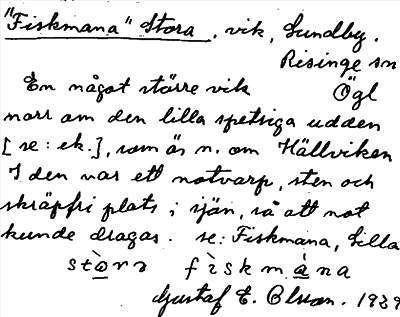 "Fiskmana" Stora, vik, Sundby.
Risinge sn
En något större vik Ögl
norr om den lilla spetsiga udden
[se: ek.], som är n. om Hällviken
I den var ett notvarp, sten och
skräpfri plats i sjön, så att not
kunde dragas. se: Fiskmana, Lilla
stò̱rɔ fìskmà̱na
Gustaf E. Olsson. 1929